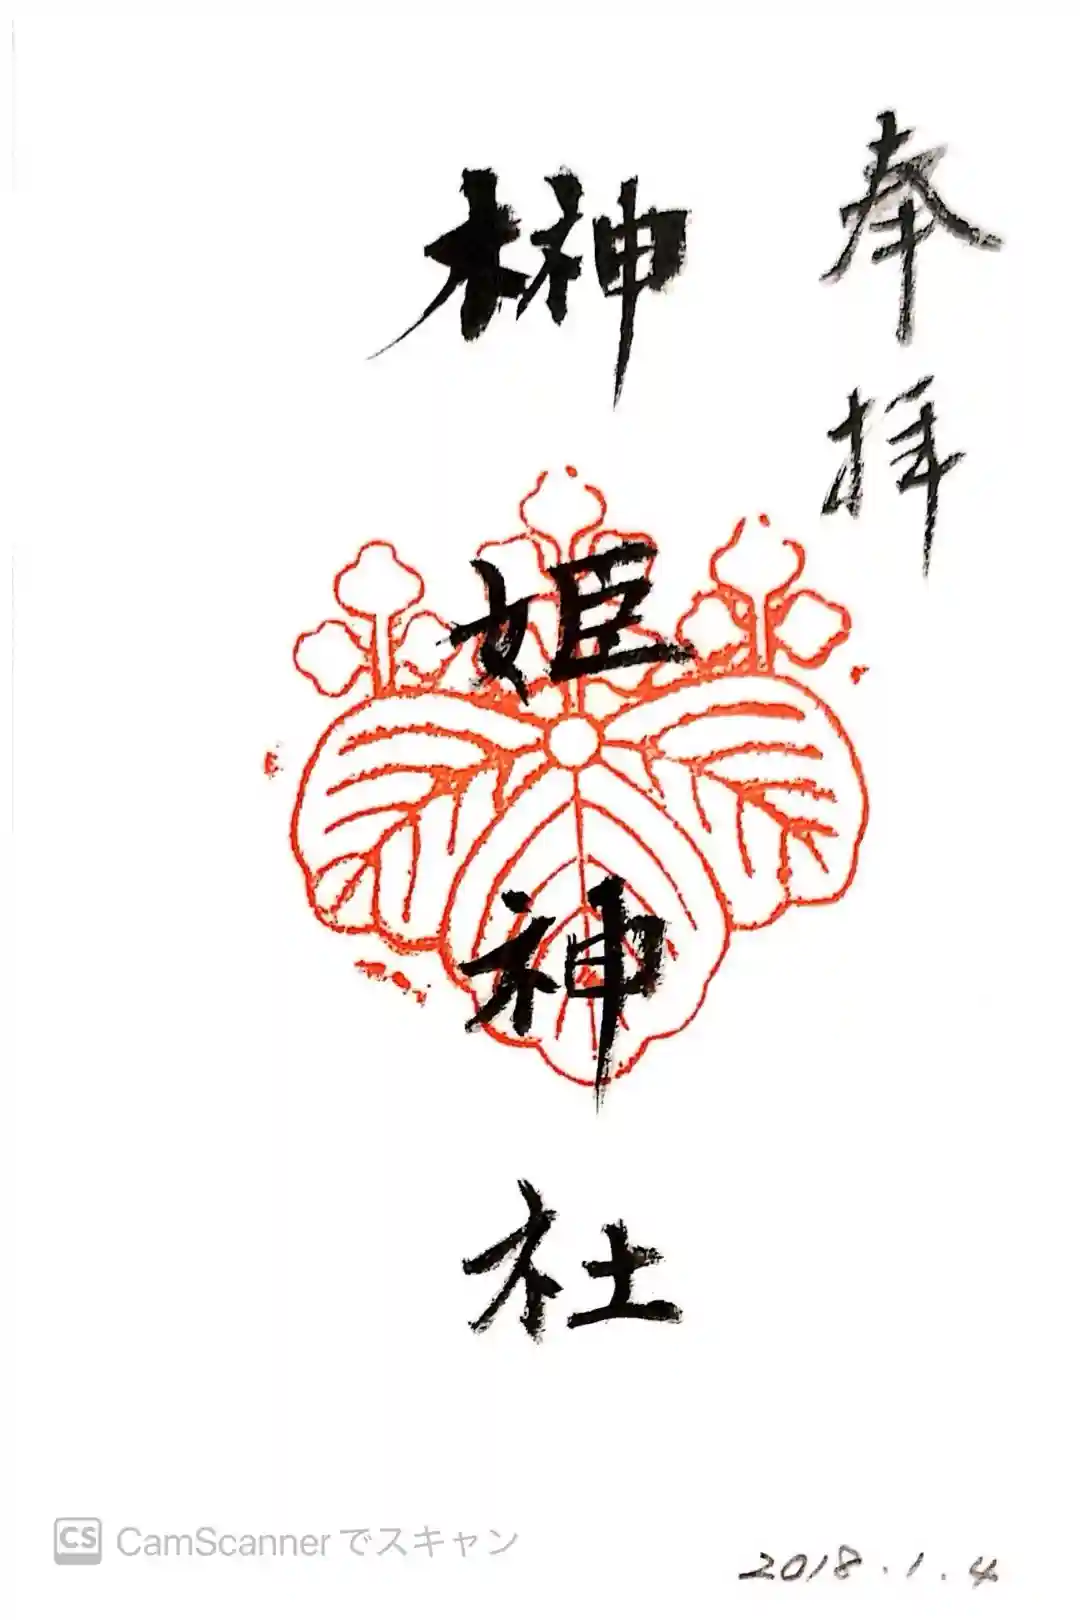 奉拝
榊姫神社
CS CamScannerでスキャン
2018.1.4